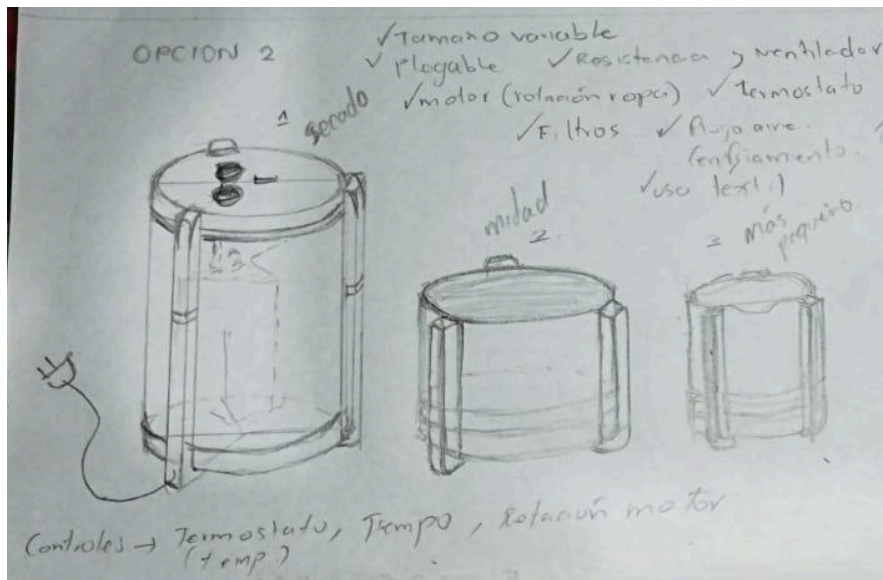 OPCION 2
✓Tamaño variable
✓ Plegable ✓Resistencia y ventilador
✓motor (rotación ropa) ✓Termostato
✓Filtros ✓ flujo aire.
(enfriamiento.
✓uso textil
1
secado
mitad
2
3 más
pequeño.
Controles → Termostato, Tiempo, Rotación motor
(temp)